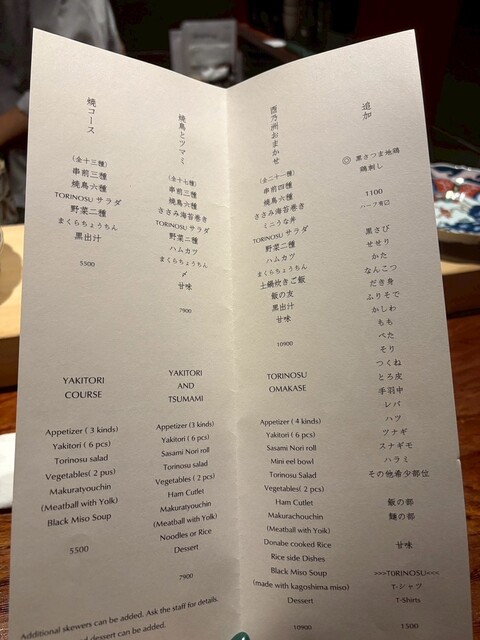 焼コース
(全十三種)
串前三種
焼鳥六種
TORINOSU サラダ
野菜二種
まくらちょうちん
黒出汁
5500
焼鳥とツマミ
(全十七種)
串前三種
焼鳥六種
ささみ海苔巻き
TORINOSU サラダ
野菜二種
ハムカツ
まくらちょうちん
〆
甘味
7900
酉乃洲おまかせ
(全二十一種)
串前四種
焼鳥六種
ささみ海苔巻き
ミニうな丼
TORINOSU サラダ
野菜二種
ハムカツ
まくらちょうちん
土鍋炊きご飯
飯の友
黒出汁
甘味
10900
追加
◎ 黒さつま地鶏
鶏刺し
1100
ハーフ有〼
黒さび
せせり
かた
なんこつ
だき身
ふりそで
かしわ
もも
ぺた
そり
つくね
とろ皮
手羽中
レバ
ハツ
ツナギ
スナギモ
ハラミ
その他希少部位
飯の部
麺の部
甘味
>>>TORINOSU<<<
T-シャツ
T-Shirts
1500
YAKITORI
COURSE
Appetizer ( 3 kinds)
Yakitori ( 6 pcs)
Torinosu salad
Vegetables( 2 pus)
Makuratyouchin
(Meatball with Yolk)
Black Miso Soup
5500
YAKITORI
AND
TSUMAMI
Appetizer (3 kinds)
Yakitori ( 6 pcs)
Sasami Nori roll
Torinosu salad
Vegetables ( 2 pcs)
Ham Cutlet
Makuratyouchin
(Meatball with Yolk)
Noodles or Rice
Dessert
7900
TORINOSU
OMAKASE
Appetizer ( 4 kinds)
Yakitori ( 6 pcs)
Sasami Nori roll
Mini eel bowl
Torinosu Salad
Vegetables( 2 pcs)
Ham Cutlet
Makurachouchin
(Meatball with Yoik)
Donabe cooked Rice
Rice side Dishes
Black Miso Soup
(made with kagoshima miso)
Dessert
10900
Additional skewers can be added. Ask the staff for details.
and dessert can be added.